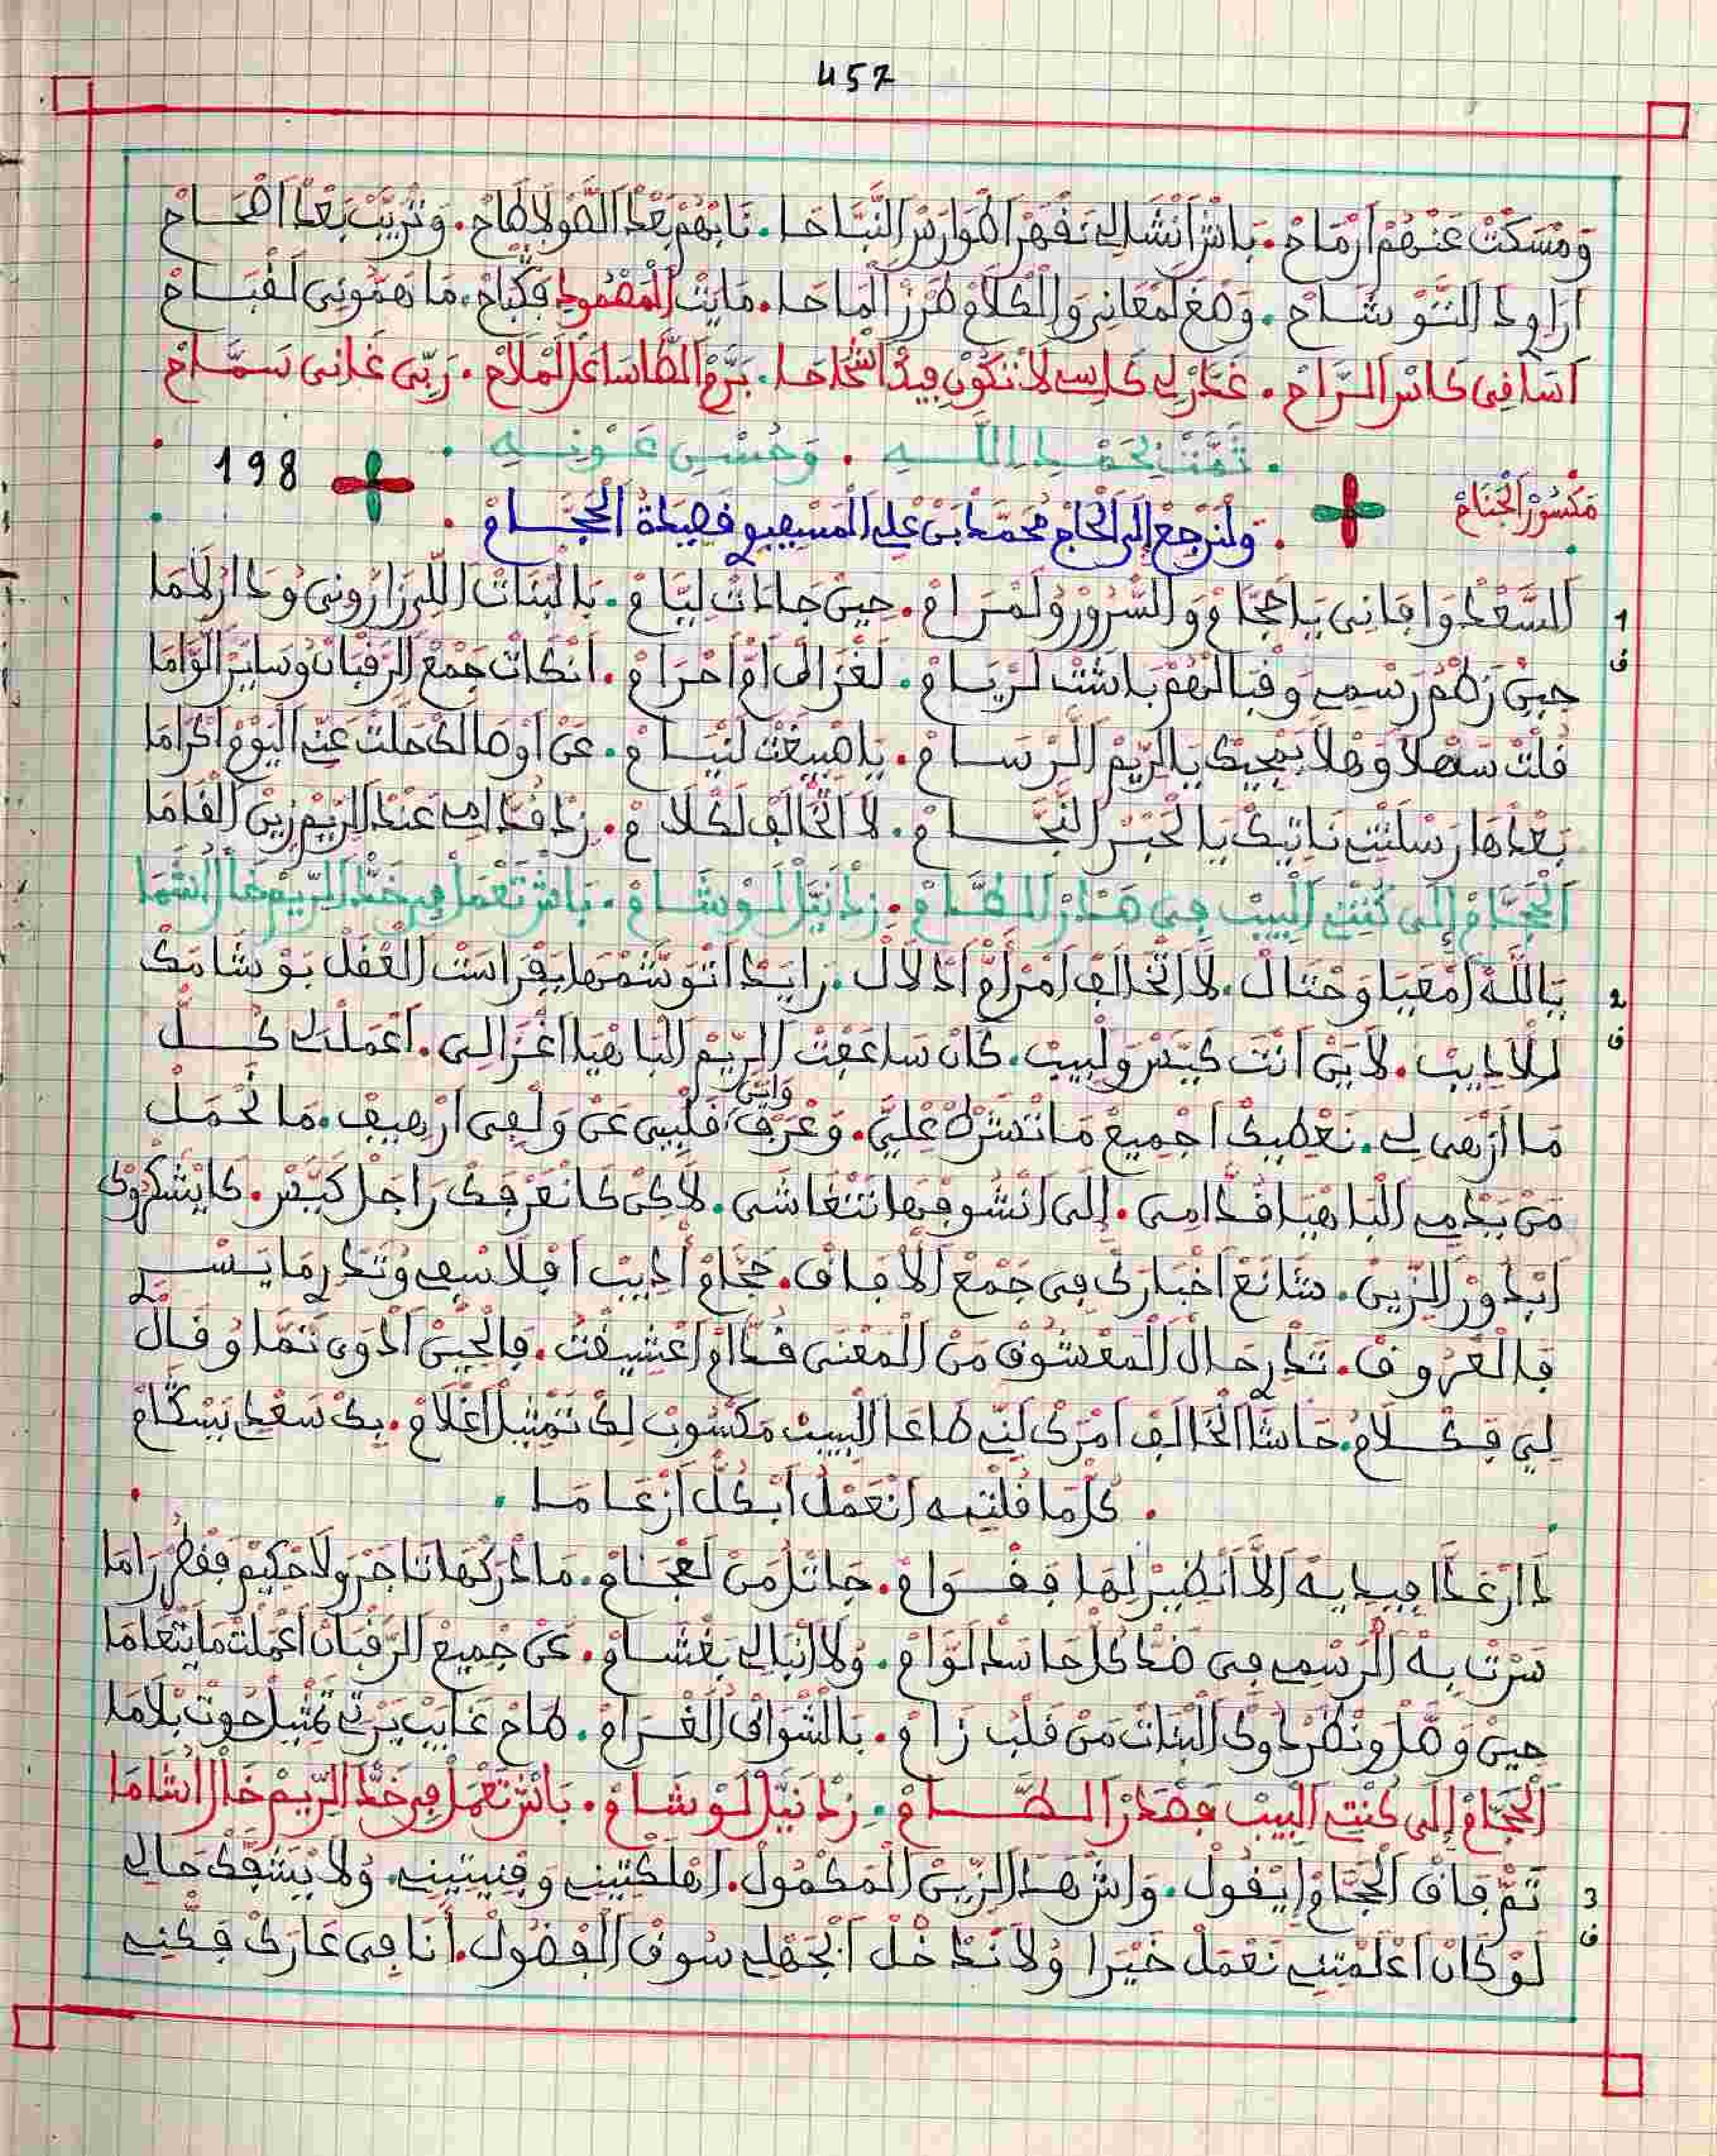 457
وَمْسَكْتْ عَنْهُمْ اَرْمَاحْ. بَاشْ اَنْشَالِي نَقْهَرْ اَطْوَارَسْ النَّبَّاحَا. نَابْهُمْ بَعْدْ الصُّولَا طَاحْ. وَنْرِيبْ بَعْدْ اَصْحَاحْ
اَرَاوِدْ التَّوْشَاحْ. وَصْغَ لَمْعَانِي وَالْكْلَامْ طَرْزْ الْمَاحَا. مَايْتْ الْمَصْمُودِ فَكْبَاحْ. مَا هَمُّونِي لَقْبَاحْ
اَسَاقِي كَاسْ الرَّاحْ. غَدَّرْ لِي كَاسِي لَا تْكُونْ فِيدْ اشْحَاحَا. بَرَّحْ الطَّاسَا عَ الْمْلَاحْ. رَبِّي غَانِي سَمَّاحْ
. تَمَّتْ بِحَمْدِ اللَّهِ . وَحُسْنِ عَوْنِهِ .
مَكْسُورْ الْجْنَاحْ
. وَلْنَرْجَعْ إِلَى الْحَاجْ مُحَمَّدْ بَنْ عَلِي الْمَسْفِيوِي فَصِيدَةْ الْحَجَّامْ .
198
1
ف
السَّعْدْ وَافَانِي يَا حَجَّامْ وَالسُّرُورْ وُلَمْرَامْ. حِينْ جَادَتْ لِيَّامْ. بَالْبْنَاتْ اللِّي زَارُونِي وُدَارْ لَامَا
حِينْ زَهْمْ رَسْمِي وَقْبَالْهُمْ بَاشْتْ لَرْيَامْ. لَغْزَالْ اَمْ اَحْرَامْ. اَنْكَاتْ جَمْعْ الرَّقْبَانْ وُسَايَرْ الْوَّامَا
قُلْتْ سَهْلَا وَهْلَا بَمْجِيكْ يَا الرِّيمْ الرْسَامْ. يَا صْبِيغْتْ لَنْيَامْ. عَنْ اَوْصَالَكْ حَلْتْ عَنِّي الْيَوْمْ اكْرَامَا
بَعْدْهَا رَسْلَتْنِي نَاتِيكْ يَا لْحَبْرْ النَّجَّامْ. لَا اتْخَالَفْ لَكْلَامْ. زِدْ قُدَّامِي عَنْدْ الرِّيمْ زِينْ الْقَامَا
الْحَجَّامْ إِلَى كُنْتِ الْبِيبْ فِي هَدَارْ الطَّامْ. زِدْ نَيَّلْ لَوْشَامْ. بَاشْ تَعْمَلْ فِي خَدّْ الرِّيمْ خَالْ الشَّامَا
2
ف
بَاللَّهْ اَمْعَيَا وَحْتَالْ. لَا اتْخَالَفْ اَمْرَامْ اَدْلَالْ. زَايَدْ اَتْوَشَّمْهَا بَفْرَاسْتْ الْعْقَلْ بَوْشَامَكْ
الْلَادِيبْ. لَايَنْ اَنْتَ كَيَّسْ وَلْبِيبْ. كَانْ سَاعَفْتْ الرِّيمْ الْبَاهْيَا اَغْزَالِي. اَعْمَلْتْ كُلّْ
مَا اَرْضَى لِي. نَعْطِيكْ اجْمِيعْ مَا تَشْرَطْ عْلِيَّ. وَعْرَفْ وَاشْ قَلْبِي عَنْ وَلْفِي اَرْهِيفْ. مَا نْحْمَلْ
مَنْ يَدْمِي الْبَاهْيَا قُدَّامِي. إِلَى اَنْشُوفْهَا نَتْغَاشَى. لَاكِنْ كَا نَعْرَفَكْ رَاجَلْ كَيَّسْ. كَا يْشَكْرُوكْ
اَبْدُورْ الزِّينْ. شَايَعْ اَخْبَارَكْ فِي جَمْعْ الْآفَاقْ. حَجَّامْ اَدِيبْ اَفْلَاسْفِي وُتَدْرِ مَا يَسْرِي
فَالْعْرُوقْ. تَدْرِ حَالْ الْمَعْشُوقْ مَنْ الْمَعْنَى قُدَّامْ اَعْشِيقْتُ. فَالْحِينْ اَدْوَى تَمَّا وُقَالْ
لِي فَكْلَامُ. حَاشَا اَنْخَالَفْ اَمْرَكْ لَنِّي طَاعَا الْبِيبْ مَكْسُوبْ لِكْ تَمْثِيلْ اَغْلَامْ. بِكْ سَعْدِي يَسْكَّامْ
. كُلّْ مَا قُلْتِيهْ اَنَعْمَلُ اَبْكُلّْ اَزْعَامَا .
دَارْ عَدَّا فِيدِيهْ اَلَا اَنْضِيرْ لِهَا فَقْوَامْ. جَاتْلْ مَنْ لَعْجَامْ. مَا دْرَكْهَا تَاجَرْ وَلَا حْكِيمْ فَقْطَرْ رَامَا
سَرْتْ بِهْ الرْسْمِي فِي ضَدّْ كُلّْ حَاسَدْ لَوَّامْ. وُلَا اَنْبَالِي بَغْشَامْ. عَنْ جْمِيعْ الرَّقْبَانْ اَعْمَلْتْ مَا يَتْعَامَا
حِينْ وَصَّلْ وَنْظَرْ دُوكْ الْبْنَاتْ مَنْ قَلْبُ زَامْ. بَالشْوَاقْ الْغْرَامْ. طَاحْ غَايَبْ يَرْتِي تَمْثِيلْ حُوتْ بْلَامَا
الْحَجَّامْ إِلَى كُنْتِ الْبِيبْ فَهْدَارْ الطَّامْ. زِدْ نَيَّلْ لَوْشَامْ. بَاشْ تَعْمَلْ فِي خَدّْ الرِّيمْ خَالْ الشَّامَا
3
ف
تَمّْ فَاقْ الْحَجَّامْ اِيقُولْ. وَاشْ هَدْ الزِّينْ الْمَكْمُولْ. اَهْلَكْتِينِي وَفْنِيتِينِي. وُلَا يَشْفَكْ حَالِي
لَوْ كَانْ اَعْلَمْتِنِي نَعْمَلْ خَيْرَا وُلَا نَدْخُلْ اَبْجَهْلِي سُوقْ الْفْضُولْ. اَنَا فِي عَارَكْ فَكْنِي